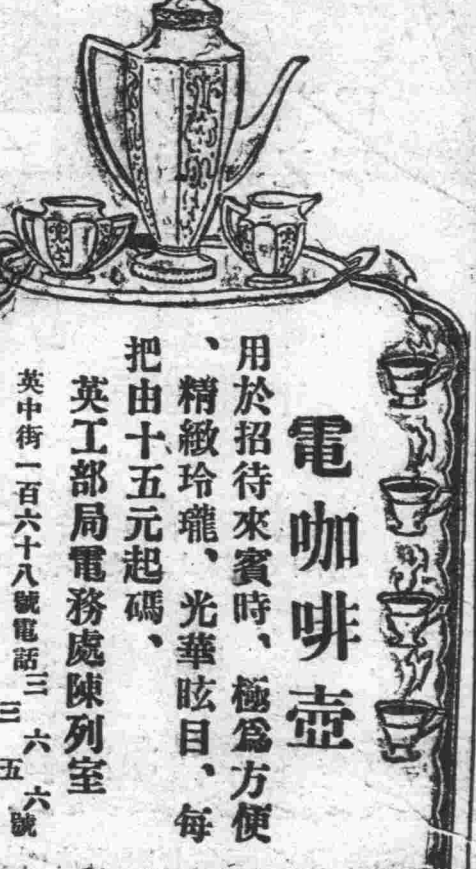 電咖啡壺
用於招待來賓時、極爲方便
、精緻玲瓏、光華眩目、每
把由十五元起碼、
英工部局電務處陳列室
英中街一百六十八號電話三三六五六號